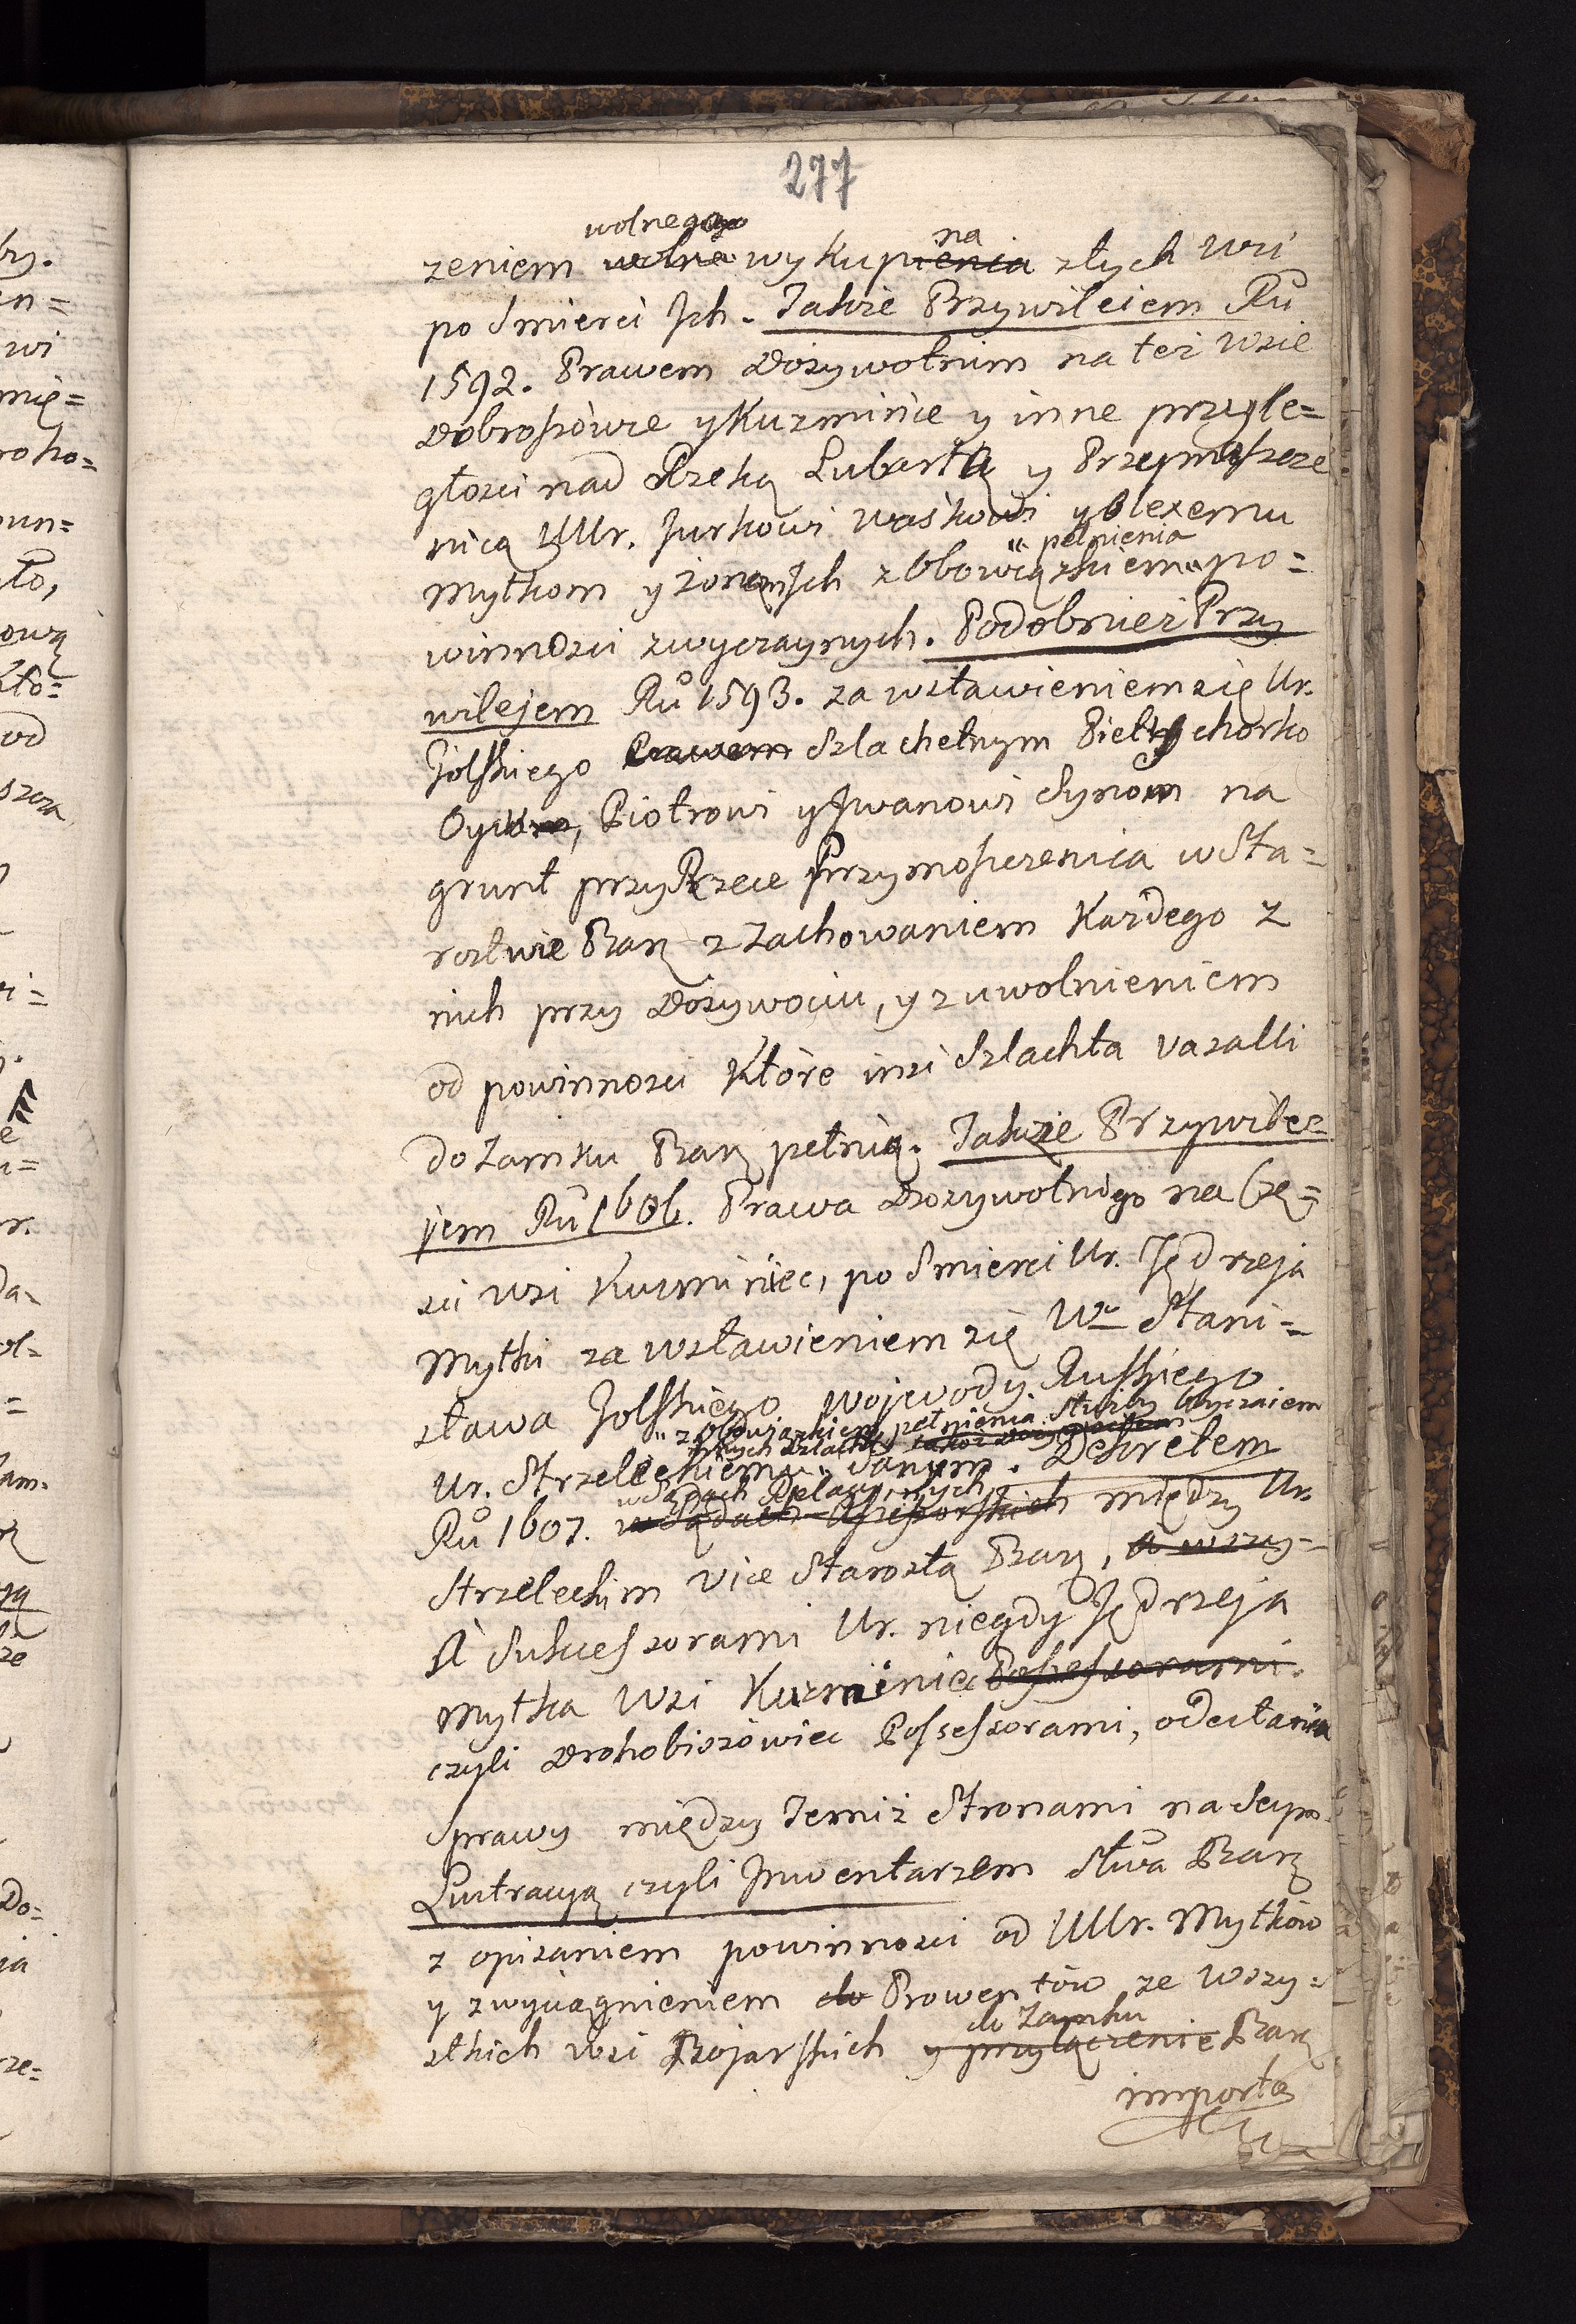 277
wolnego na
zeniem wolne wykupienia złych wsi
po Smierci Ich. Także Przywileiem Ru
1592. Prawem Dożywotnim na też Wsie
Dobroszówce y Kuzmińce y inne przyle=
głosci nad Rzeką Lubartą y Przemoszcze
nicą UUr. Jurkowi Waśkowi y Olexemu
„ pełnienia
Mytkom y żonom Ich z Obowiązkiem „ po=
winnosci zwyczaynych. Podobnież Przy
wilejem Ru 1593. za wstawieniem się Ur.
Żolskiego Prawem Szlachetnym Pietrychorko
Oycu, Piotrowi y Iwanowi Synom na
grunt przy Rzece Przymoszczenica w Sta=
rostwie Bar: z zachowaniem Każdego z
nich przy Dożywociu, y z uwolnieniem
od powinnosci Które insi Szlachta Vasalli
do Zamku Bar: pełnią. Także Przywile=
jem Ru 1606. Prawa Dożywotnigo na Czę=
sci wsi Kuzminiec, po Smierci Ur. Jędrzeja
Mytki za wstawieniem się Wo Stani=
sława Żolskiego Wojewody Ruskiego
„ z obowiązkiem pełnienia służby obyczaiem
innych Szlachty
Ur. Strzeleckiemu „ danym. Dekretem
w Sądach Relacyinych
Ru 1607. w Sądach Assessorskich między Ur.
Strzeleckim Vice Starostą Bar:, a wszy=
A Sukcessorami Ur. niegdy Jędrzeja
Mytka Wsi Kuzminiec Possessorami.
czyli Drohobiszówiec Possessorami, odesłania
Sprawy między Temiż Stronami na Seym.
Lustracyą czyli Inwentarzem Stwa Bar:
z opisaniem powinnosci od UUr. Mytków
y z wyciągnieniem do Prowentów ze Wszy=
do Zamku
stkich wsi Bojarskich y przyłączenie Bar:
importa